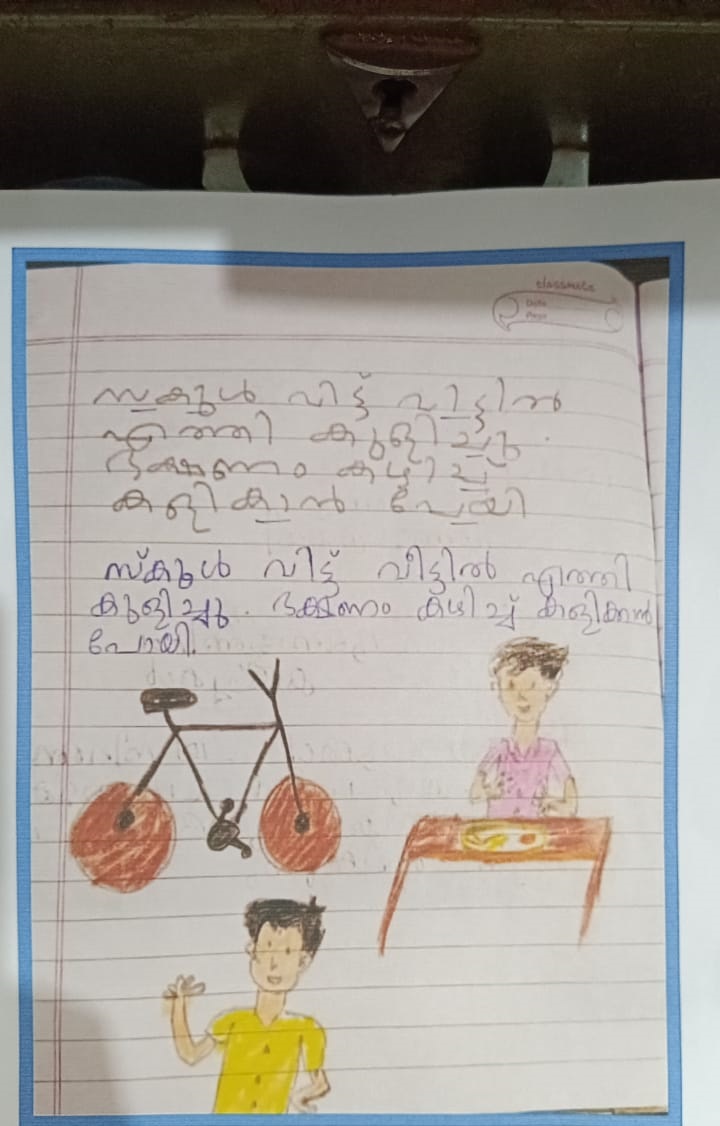 classmate
Date
Page
സകൂൾ വിട്ട് വിട്ടിൽ
എത്തി കുളിച്ചു.
ഭക്ഷണം കഴിച്ച്
കളികാൻ പോയി
സ്കൂൾ വിട്ട് വീട്ടിൽ എത്തി
കുളിച്ചു. ഭക്ഷണം കഴിച്ച് കളിക്കാൻ
പോയി.